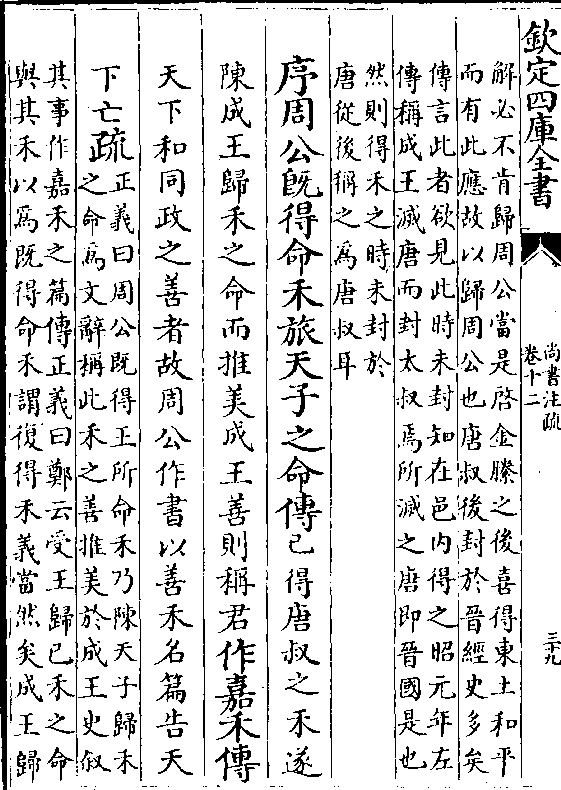 欽定四庫全書
尚書注疏
卷十二
三十九
解必不肯歸周公當是啓金縢之後喜得東土和平
而有此應故以歸周公也唐叔後封於晉經史多矣
傳言此者欲見此時未封知在邑內得之昭元年左
傳稱成王滅唐而封太叔焉所滅之唐即晉國是也
然則得禾之時未封於
唐從後稱之為唐叔耳
序周公既得命禾旅天子之命傳已得唐叔之禾遂
陳成王歸禾之命而推美成王善則稱君作嘉禾傳
天下和同政之善者故周公作書以善禾名篇告天
下亡疏
正義曰周公既得王所命禾乃陳天子歸禾
之命為文辭稱此禾之善推美於成王史叙
其事作嘉禾之篇傳正義曰鄭云受王歸已禾之命
與其禾以為既得命禾謂復得禾義當然矣成王歸